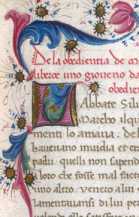 De la obedientia de m
libero: uno giouene da
obedien
Abbate Silu
Marcho il qu
mente lo amaua. de
haueano inuidia et er
padri. quelli non sapend
loro che fosse mal fact
uno altro. veneno alui
lamentauansi di lui p